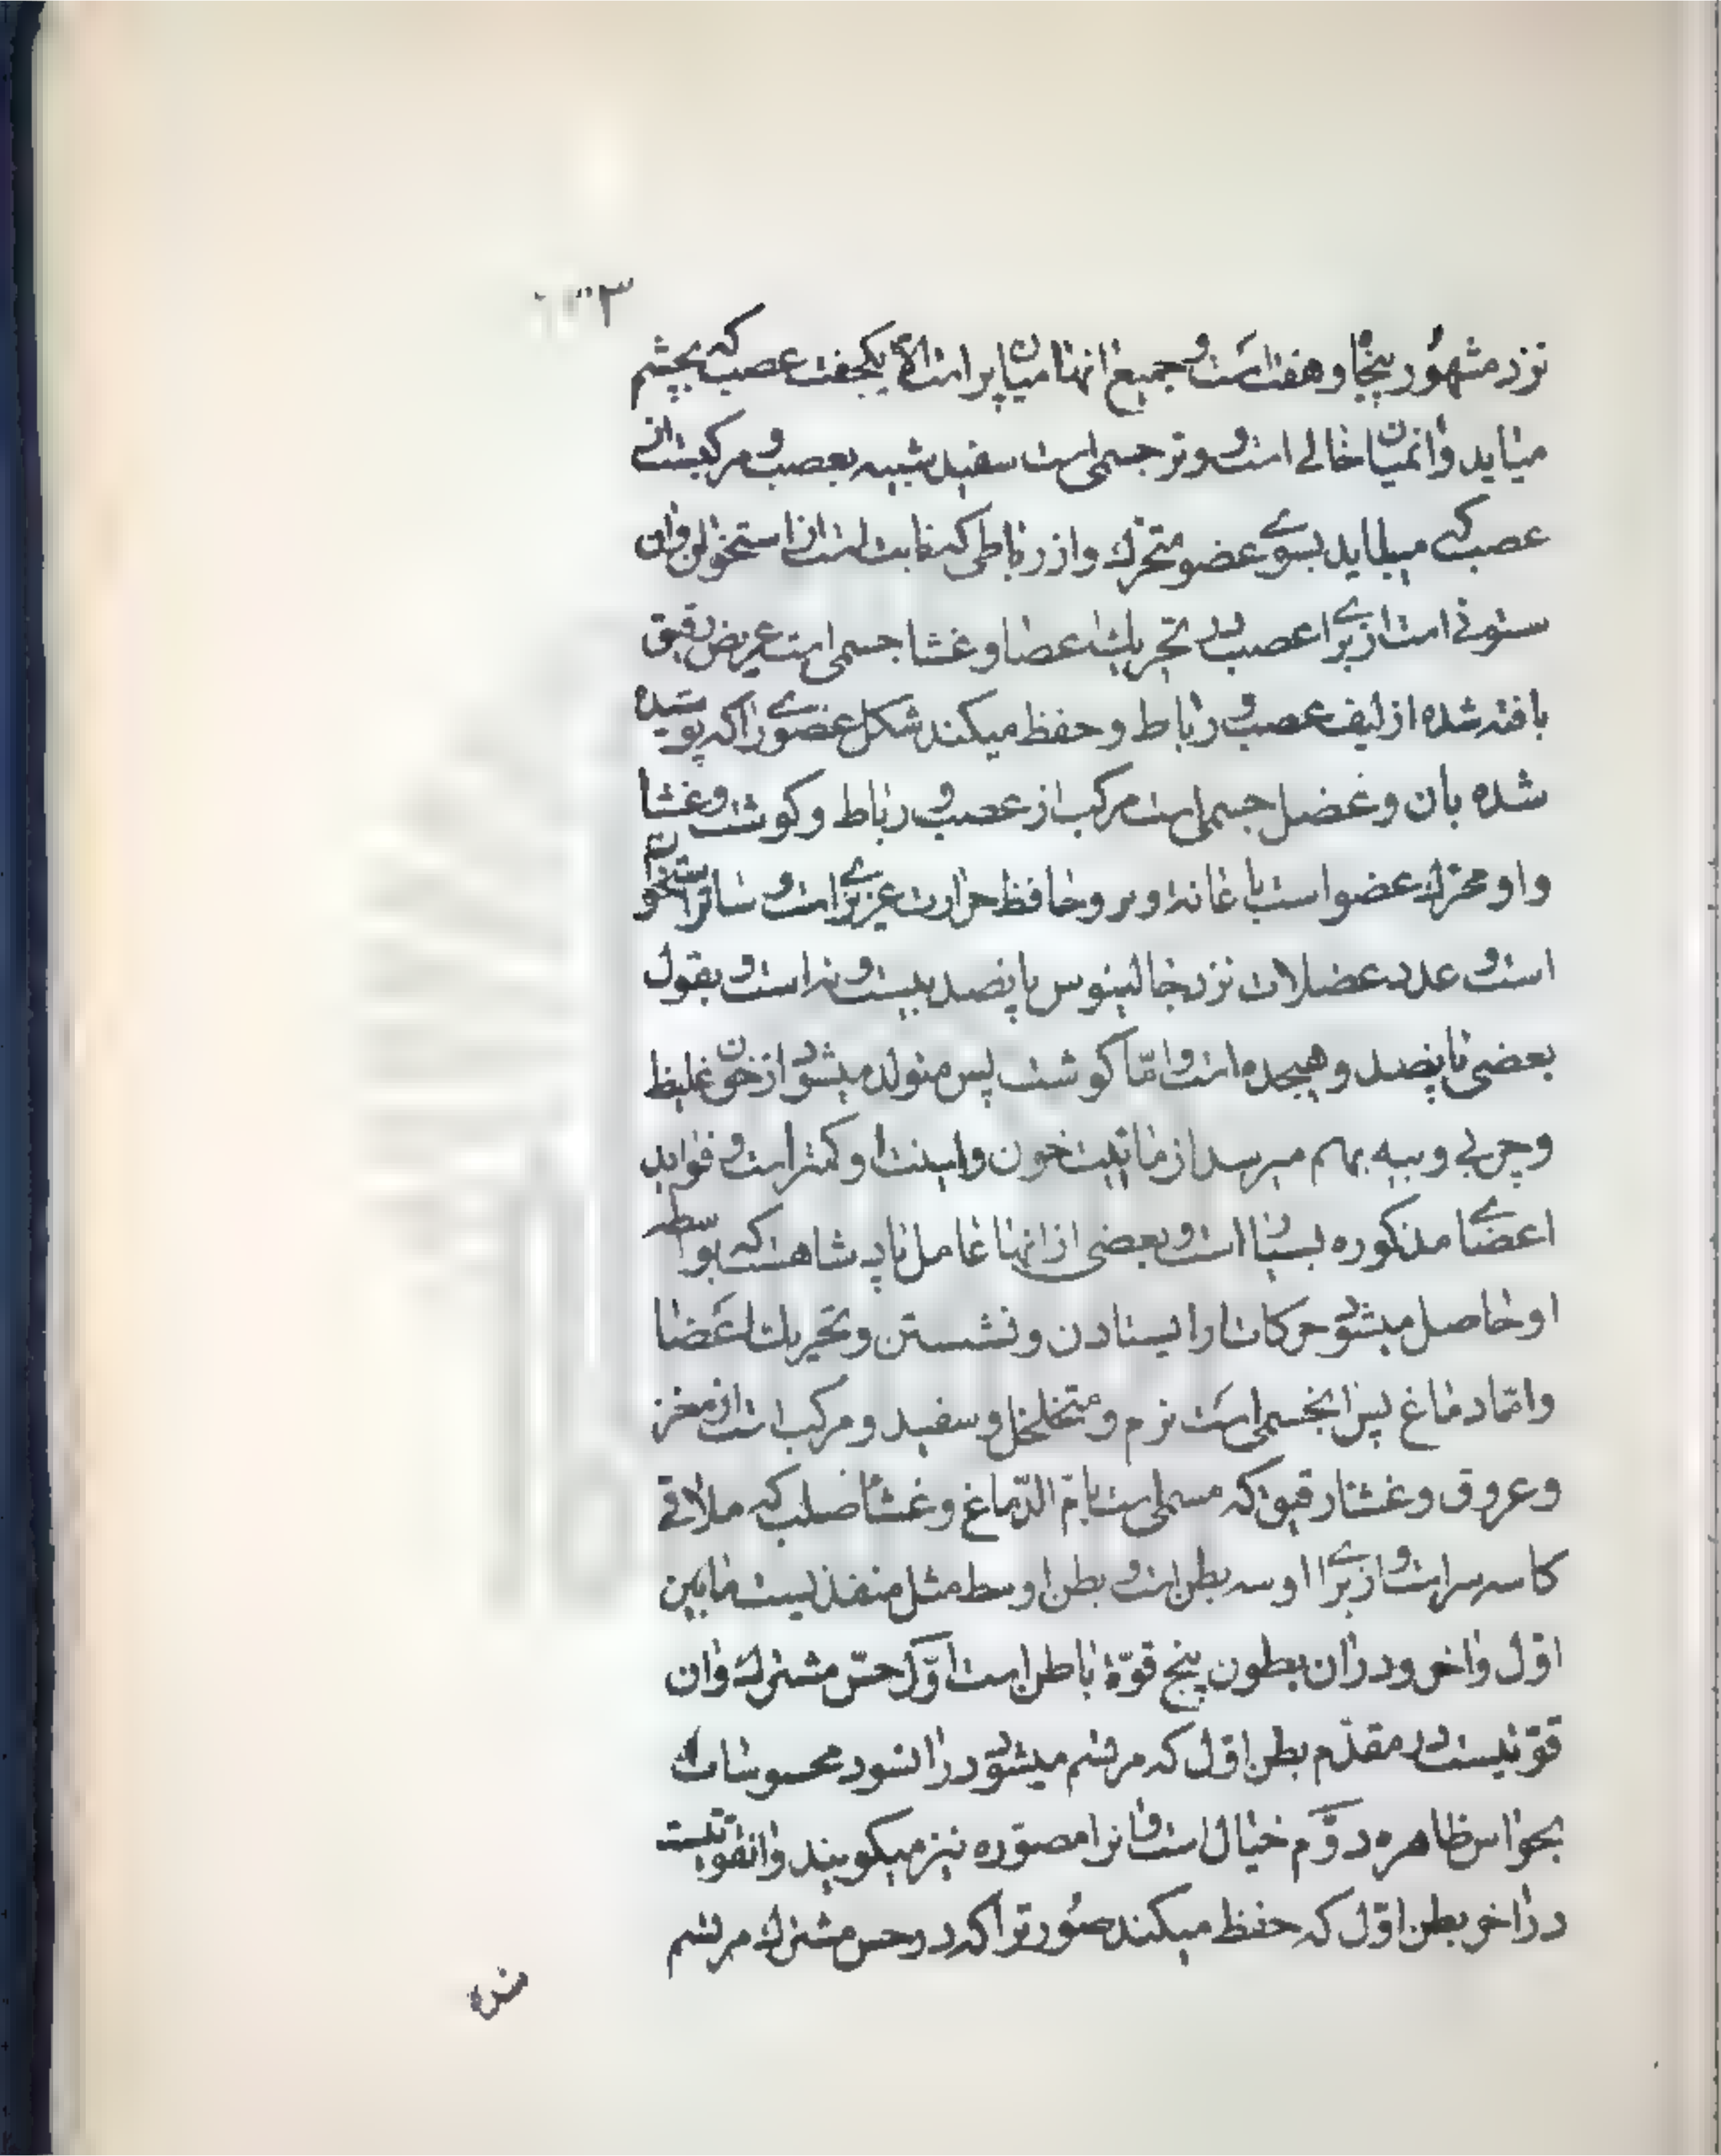 نزد مشهور پنجاه و هفت است و جمیع انها میان پر است الا یکجفت عصب که بچشم
میاید و انمیان خالی است و وتر جسمی است سفید شبیه بعصب و مرکبست از
عصب که میاید بسوی عضو متحرک و از رباطی که نابت است از استخوان و ان
ستونی است از برای عصب در تحریک اعضا و غشا جسمی است عریض رقیق
بافته شده از لیف عصب و رباط و حفظ میکند شکل عضوی را که پوشیده
شده بان و عضل جسمی است مرکب از عصب و رباط و کوشت و غشا
و او محرک عضو است باعانه وتر و حافظ حرارت عزیزی است و ساتر استخوان
است و عدد عضلات نزد جالینوس پانصد بیست و نه است و بقول
بعضی پانصد و هیجده است و امّا کوشت پس متولد میشود از خون غلیظ
و چربی و پیه بهم میرسد از مائیت خون و لینت او کمتر است و فواید
اعضای مذکوره بسیار است و بعضی از انها عامل پادشاهست که بواسطه
او حاصل میشود حرکات ارایستادن و نشستن و تحریک اعضا
و امّا دماغ پس انجسمی است نرم و متخلخل و سفید و مرکب است از مغز
و عروق و غشا رقیق که مسمی است بامّ الدّماغ و غشا صلب که ملاقی
کاسه سر است و از برای او سه بطن است و بطن اوسط مثل منفذیست مابین
اوّل و اخر و در ان بطون پنج قوّه باطن است اوّل حسّ مشترک و ان
قوّتیست در مقدّم بطن اوّل که مرتسم میشود در ان صور محسوسات
بحواس ظاهره دوّم خیال است و انرا مصوّره نیز میکویند و انقوّتیست
در اخر بطن اوّل که حفظ میکند صورترا که در حس مشترک مرتسم
شده